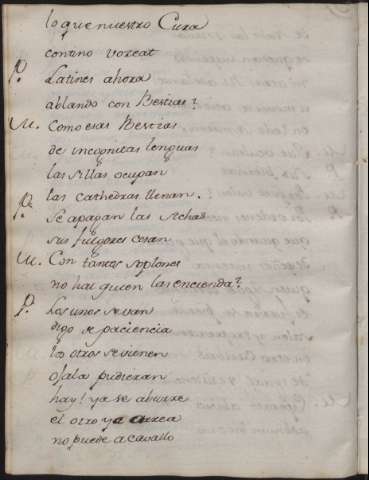 lo que nuestro Cura
contino voxeat
P. Latines ahora
ablando con Bestias?
M. Como esas Bestias
de incognitas lenguas
las sillas ocupan
las cathedras llenan.
P. Se apagan las hachas
sus fulgores cesan
M. Con tantos soplones
no hai quien las encienda?
P. Los unos se van
digo se paciencia
los otros se vienen
ojala pudieran
hay! ya se aburre
el otro ya
no puede a cavallo